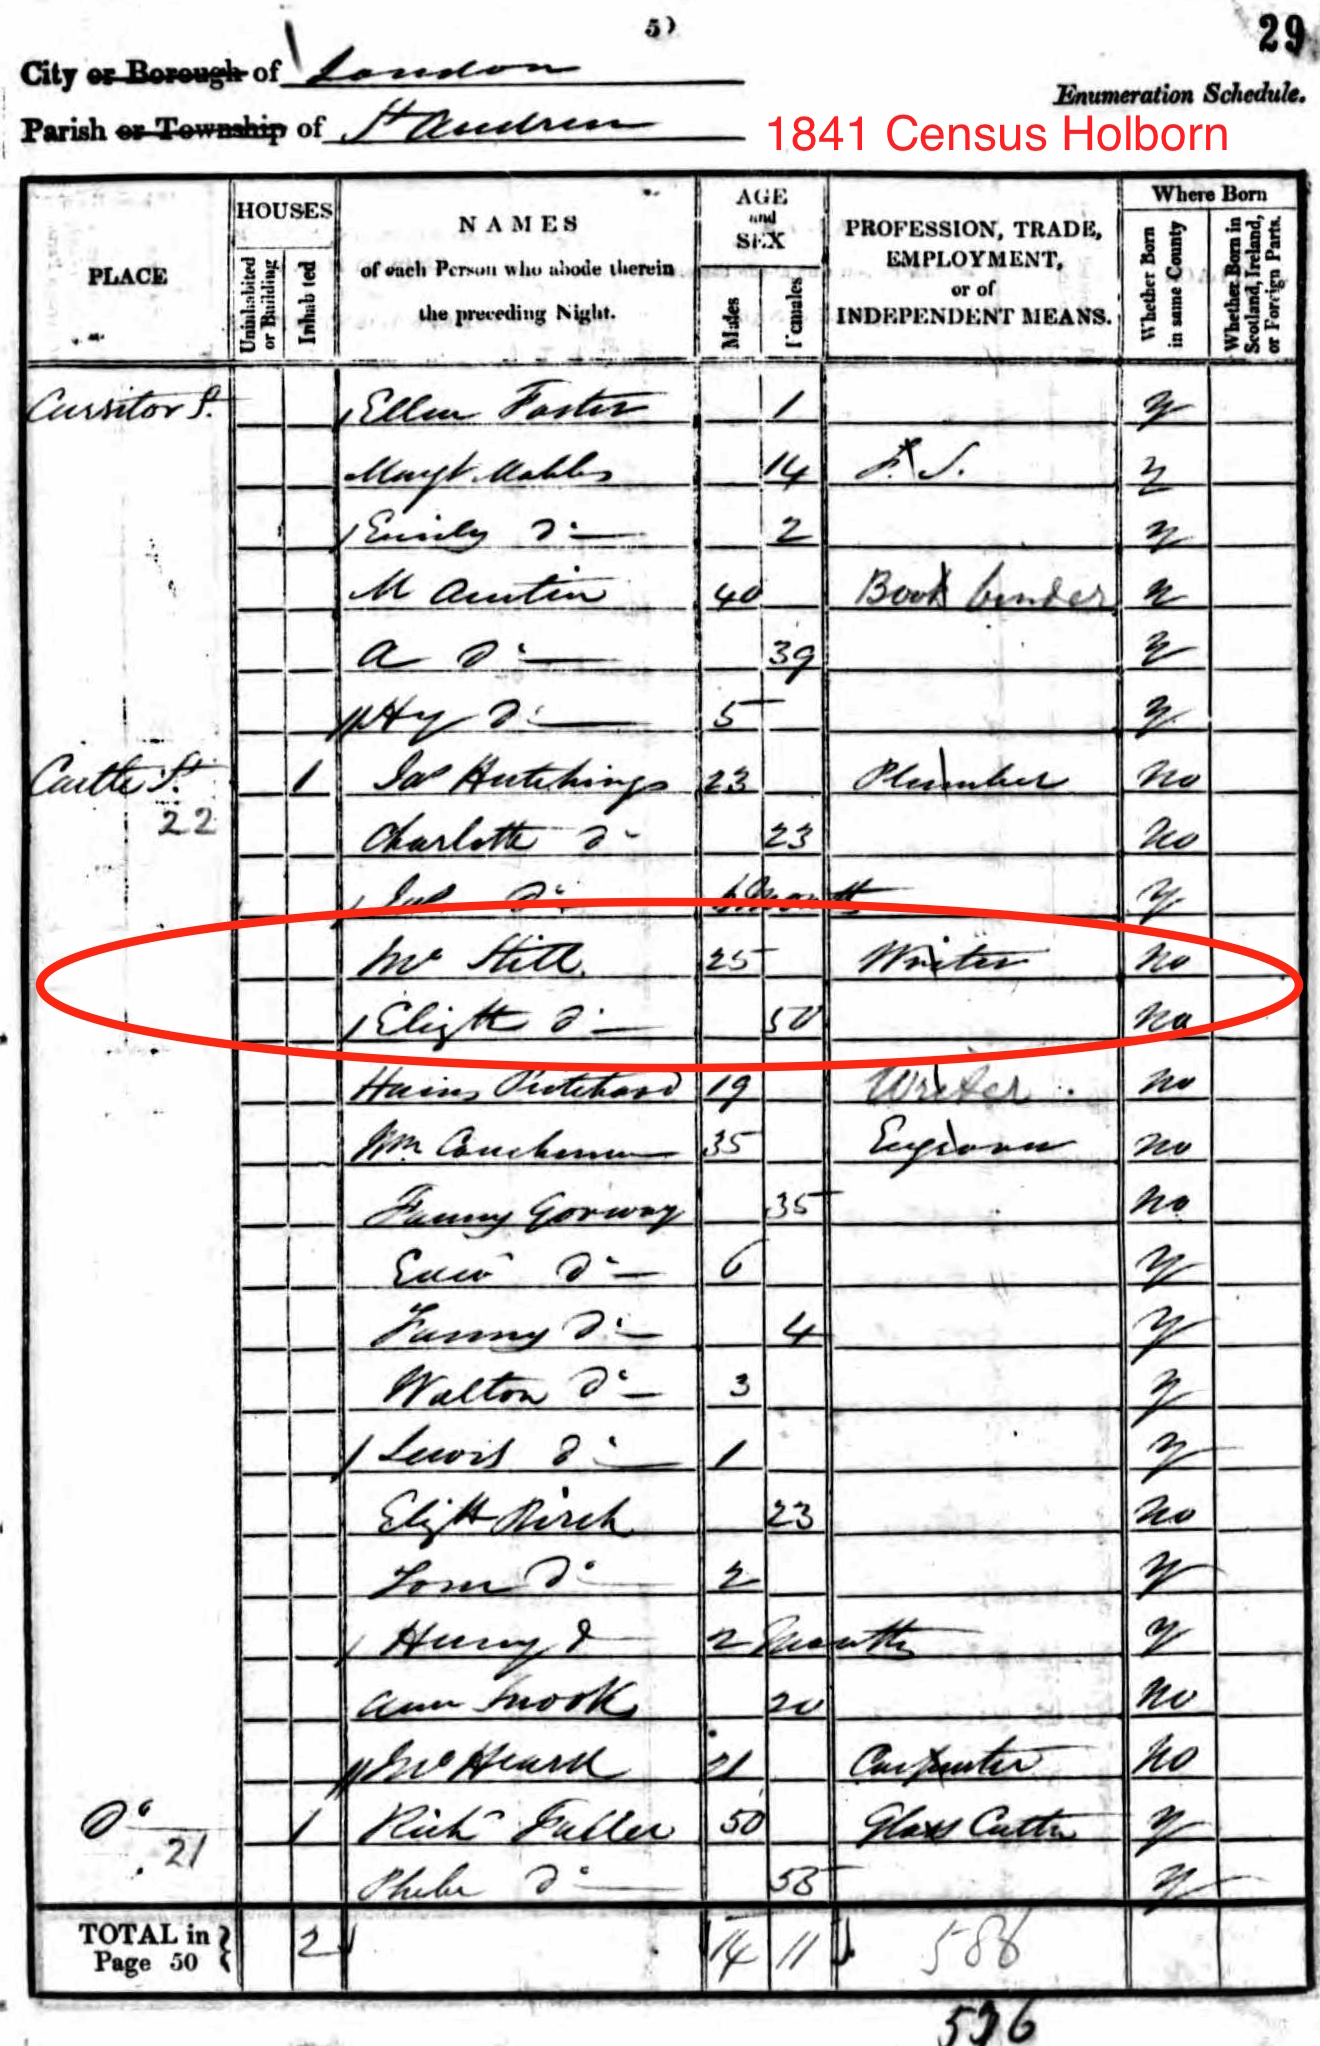 50
29
City or Borough of London
Enumeration Schedule.
Parish or Township of St Andrew
1841 Census Holborn
PLACE
HOUSES
Uninhabited or Building
Inhabited
NAMES
of each Person who abode therein
the preceding Night.
AGE
and
SEX
Males
Females
PROFESSION, TRADE,
EMPLOYMENT,
or of
INDEPENDENT MEANS.
Where Born
Whether Born in same County
Whether Born in Scotland, Ireland, or Foreign Parts.
Cursitor St. Ellen Foster 1 y
Margt 14 F. S. y
Emily Do 2 y
M Austin 40 Book binder n
A Do 39 y
Hy Do 5 y
Castle St. 22 1 Jas Hutchings 23 Plumber No
Charlotte Do 23 No
Do months y
Jno Still 25 Writer No
Elizth Do 50 No
Pritchard 19 Writer No
Wm 35 Engraver No
Fanny Gorway 35 No
Edwd Do 6 y
Fanny Do 4 y
Walton Do 3 y
Lewis Do 1 y
Elizth Birch 23 No
Tom Do 2 y
Henry Do 2 Months y
Ann Snook 20 No
Jno Heard 21 Carpenter No
Do 21 1 Richd Fuller 50 Glass Cutter y
Phebe Do 55 y
TOTAL in Page 50 2 14 11 586
536